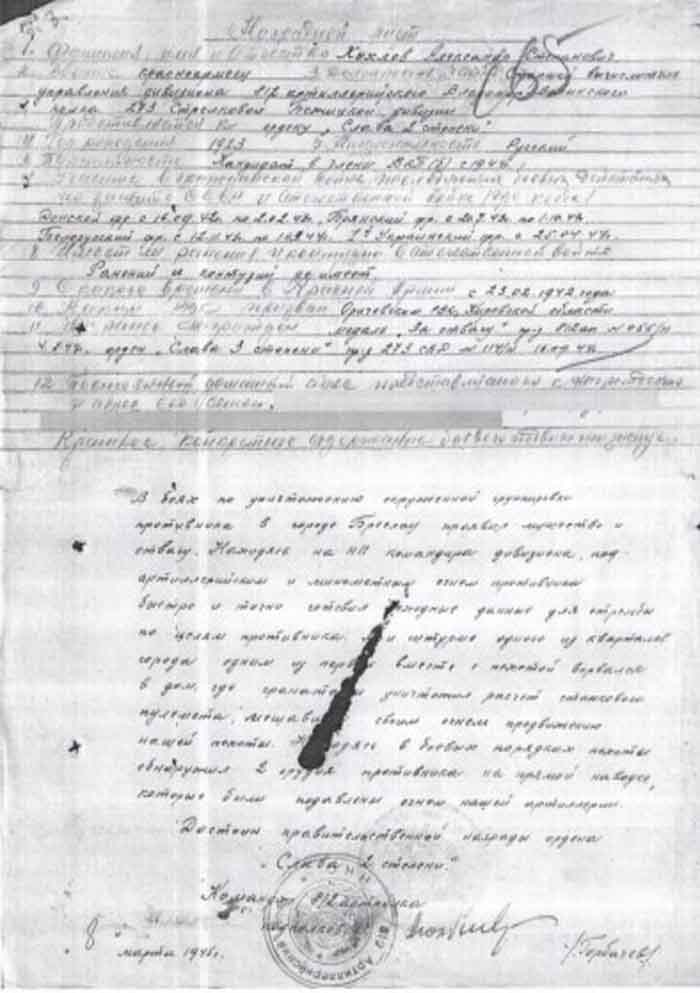 Наградной лист
1. Фамилия, имя и отчество Хохлов Александр Степанович
2. Звание красноармеец 3. Должность, часть старший вычислитель
управления дивизиона 812 артиллерийского
полка 273 Стрелковой Бежицкой дивизии
Представляется к ордену „Слава 2 степени"
4. Год рождения 1923 5. Национальность Русский
6. Партийность Кандидат в члены ВКП(б) с 1944 г.
7. Участие в гражданской войне, последующих боевых действиях
по защите СССР и отечественной войне (где, когда)
Донской фр. с 16.09.42 по 2.02.43, Брянский фр. с 20.7.43 по 1.10.43
Белорусский фр. с 12.11.43 по 1.04.44, 1й Украинский фр. с 25.04.44.
8. Имеет ли ранения и контузии в отечественной войне
Ранений и контузий не имеет.
9. С какого времени в Красной Армии с 23.02.1942 года
10. Каким РВК призван Кировской области
11. Чем ранее награжден медаль „За отвагу"
орден „Слава 3 степени" пр. 273 сд
12. Постоянный домашний адрес представляемого к награждению
и адрес его семьи.
Краткое, конкретное содержание боевого подвига или заслуг.
В боях по уничтожению окруженной группировки
противника в городе Бреслау проявил мужество и
отвагу. Находясь на НП командира дивизиона, под
артиллерийским и минометным огнем противника
быстро и точно готовил исходные данные для стрельбы
по целям противника. При штурме одного из кварталов
города одним из первых вместе с пехотой ворвался
в дом, где гранатами уничтожил расчет станкового
пулемета, мешавший своим огнем продвижению
нашей пехоты. Находясь в боевых порядках пехоты
обнаружил 2 орудия противника на прямой наводке,
которые были подавлены огнем нашей артиллерии.
Достоин правительственной награды ордена
„Слава 2 степени."
Командир 812 артполка
подполковник
/Горбачев/
8 марта 1945 г.